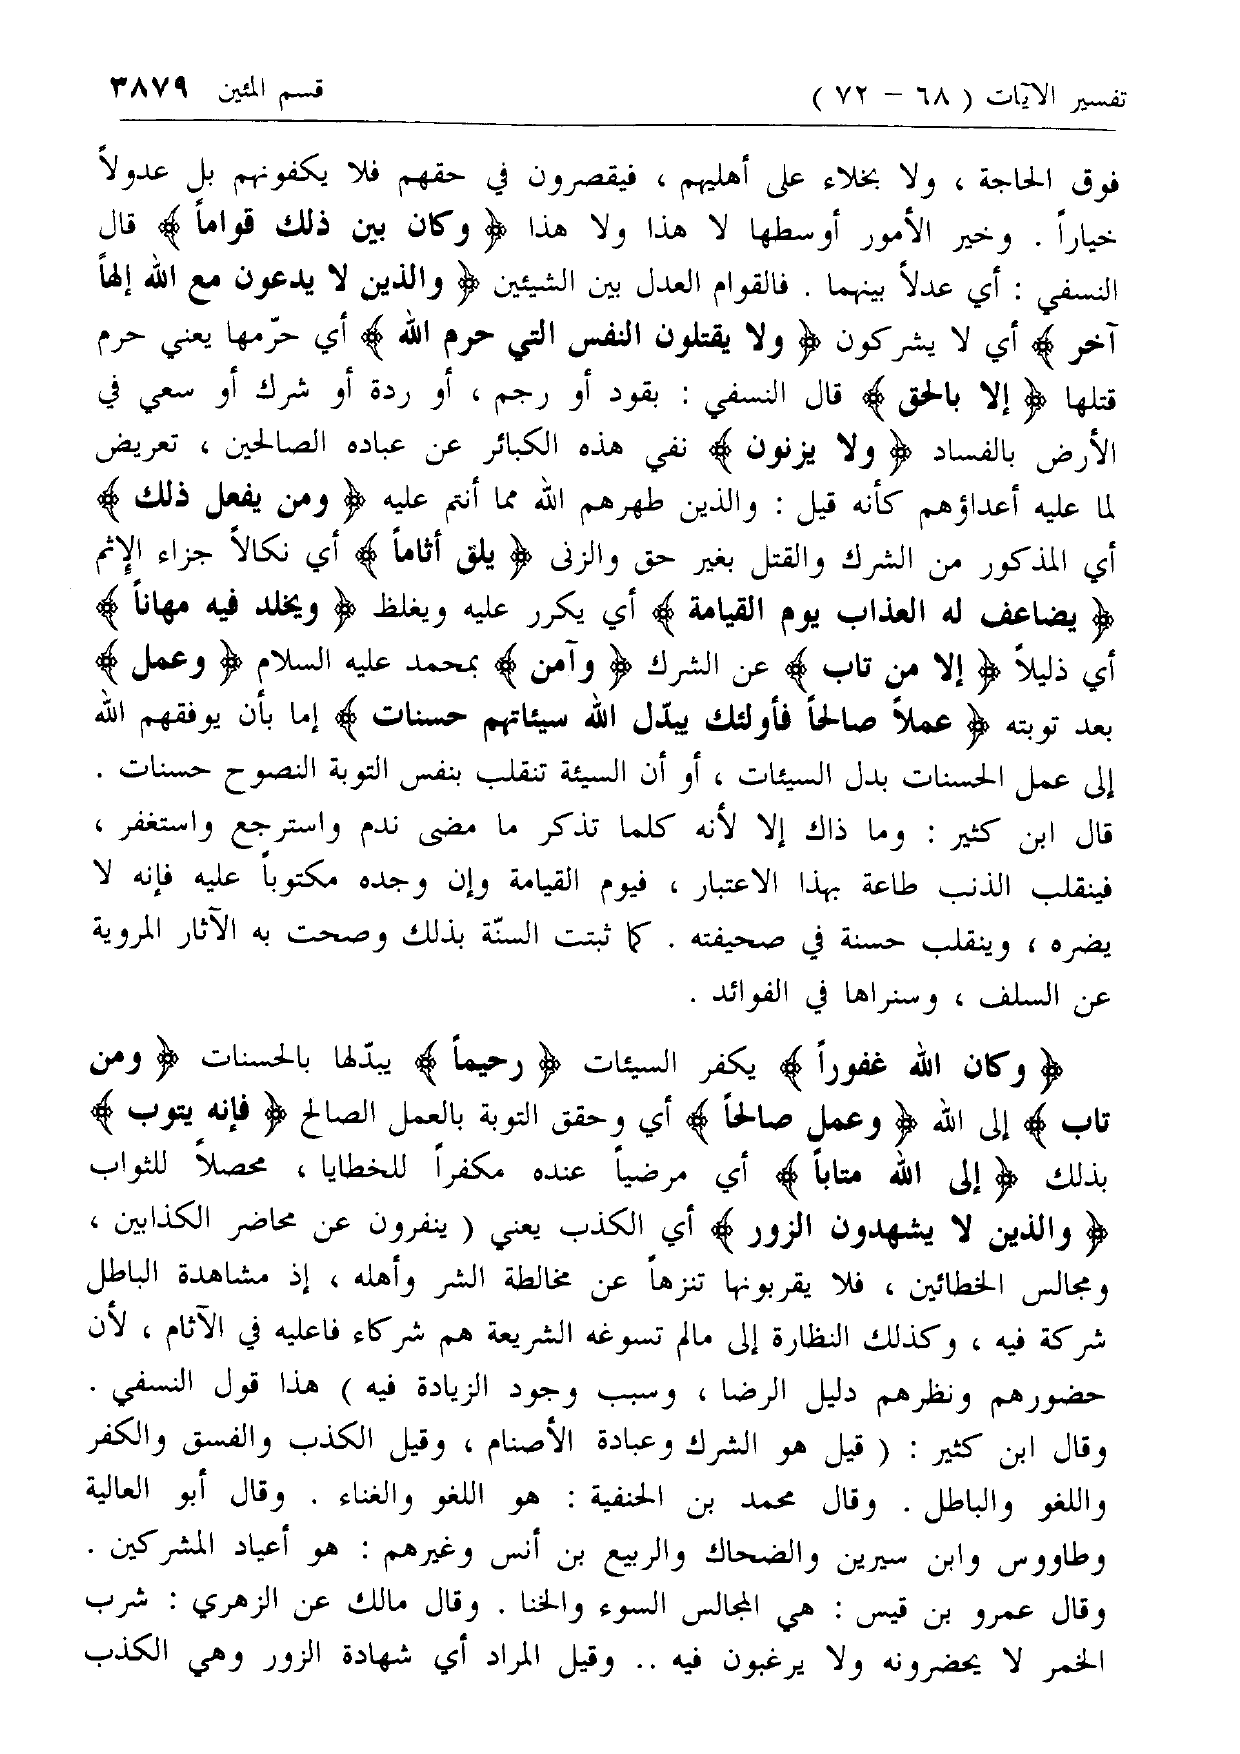 تفسير الآيات ( ٦٨ - ٧٢ ) قسم المئين ٣٨٧٩
فوق الحاجة ، ولا بخلاء على أهليهم ، فيقصرون في حقهم فلا يكفونهم بل عدولاً
خياراً . وخير الأمور أوسطها لا هذا ولا هذا ﴿ وكان بين ذلك قواماً ﴾ قال
النسفي : أي عدلاً بينهما . فالقوام العدل بين الشيئين ﴿ والذين لا يدعون مع الله إلهاً
آخر ﴾ أي لا يشركون ﴿ ولا يقتلون النفس التي حرم الله ﴾ أي حرّمها يعني حرم
قتلها ﴿ إلا بالحق ﴾ قال النسفي : بقود أو رجم ، أو ردة أو شرك أو سعي في
الأرض بالفساد ﴿ ولا يزنون ﴾ نفي هذه الكبائر عن عباده الصالحين ، تعريض
لما عليه أعداؤهم كأنه قيل : والذين طهرهم الله مما أنتم عليه ﴿ ومن يفعل ذلك ﴾
أي المذكور من الشرك والقتل بغير حق والزنى ﴿ يلق أثاماً ﴾ أي نكالاً جزاء الإثم
﴿ يضاعف له العذاب يوم القيامة ﴾ أي يكرر عليه ويغلظ ﴿ ويخلد فيه مهاناً ﴾
أي ذليلاً ﴿ إلا من تاب ﴾ عن الشرك ﴿ وآمن ﴾ بمحمد عليه السلام ﴿ وعمل ﴾
بعد توبته ﴿ عملاً صالحاً فأولئك يبدّل الله سيئاتهم حسنات ﴾ إما بأن يوفقهم الله
إلى عمل الحسنات بدل السيئات ، أو أن السيئة تنقلب بنفس التوبة النصوح حسنات .
قال ابن كثير : وما ذاك إلا لأنه كلما تذكر ما مضى ندم واسترجع واستغفر ،
فينقلب الذنب طاعة بهذا الاعتبار ، فيوم القيامة وإن وجده مكتوباً عليه فإنه لا
يضره ، وينقلب حسنة في صحيفته . كما ثبتت السنّة بذلك وصحت به الآثار المروية
عن السلف ، وسنراها في الفوائد .
﴿ وكان الله غفوراً ﴾ يكفر السيئات ﴿ رحيماً ﴾ يبدّلها بالحسنات ﴿ ومن
تاب ﴾ إلى الله ﴿ وعمل صالحاً ﴾ أي وحقق التوبة بالعمل الصالح ﴿ فإنه يتوب ﴾
بذلك ﴿ إلى الله متاباً ﴾ أي مرضياً عنده مكفراً للخطايا ، محصلاً للثواب
﴿ والذين لا يشهدون الزور ﴾ أي الكذب يعني ( ينفرون عن محاضر الكذابين ،
ومجالس الخطائين ، فلا يقربونها تنزهاً عن مخالطة الشر وأهله ، إذ مشاهدة الباطل
شركة فيه ، وكذلك النظارة إلى مالم تسوغه الشريعة هم شركاء فاعليه في الآثام ، لأن
حضورهم ونظرهم دليل الرضا ، وسبب وجود الزيادة فيه ) هذا قول النسفي .
وقال ابن كثير : ( قيل هو الشرك وعبادة الأصنام ، وقيل الكذب والفسق والكفر
واللغو والباطل . وقال محمد بن الحنفية : هو اللغو والغناء . وقال أبو العالية
وطاووس وابن سيرين والضحاك والربيع بن أنس وغيرهم : هو أعياد المشركين .
وقال عمرو بن قيس : هي المجالس السوء والخنا . وقال مالك عن الزهري : شرب
الخمر لا يحضرونه ولا يرغبون فيه .. وقيل المراد أي شهادة الزور وهي الكذب